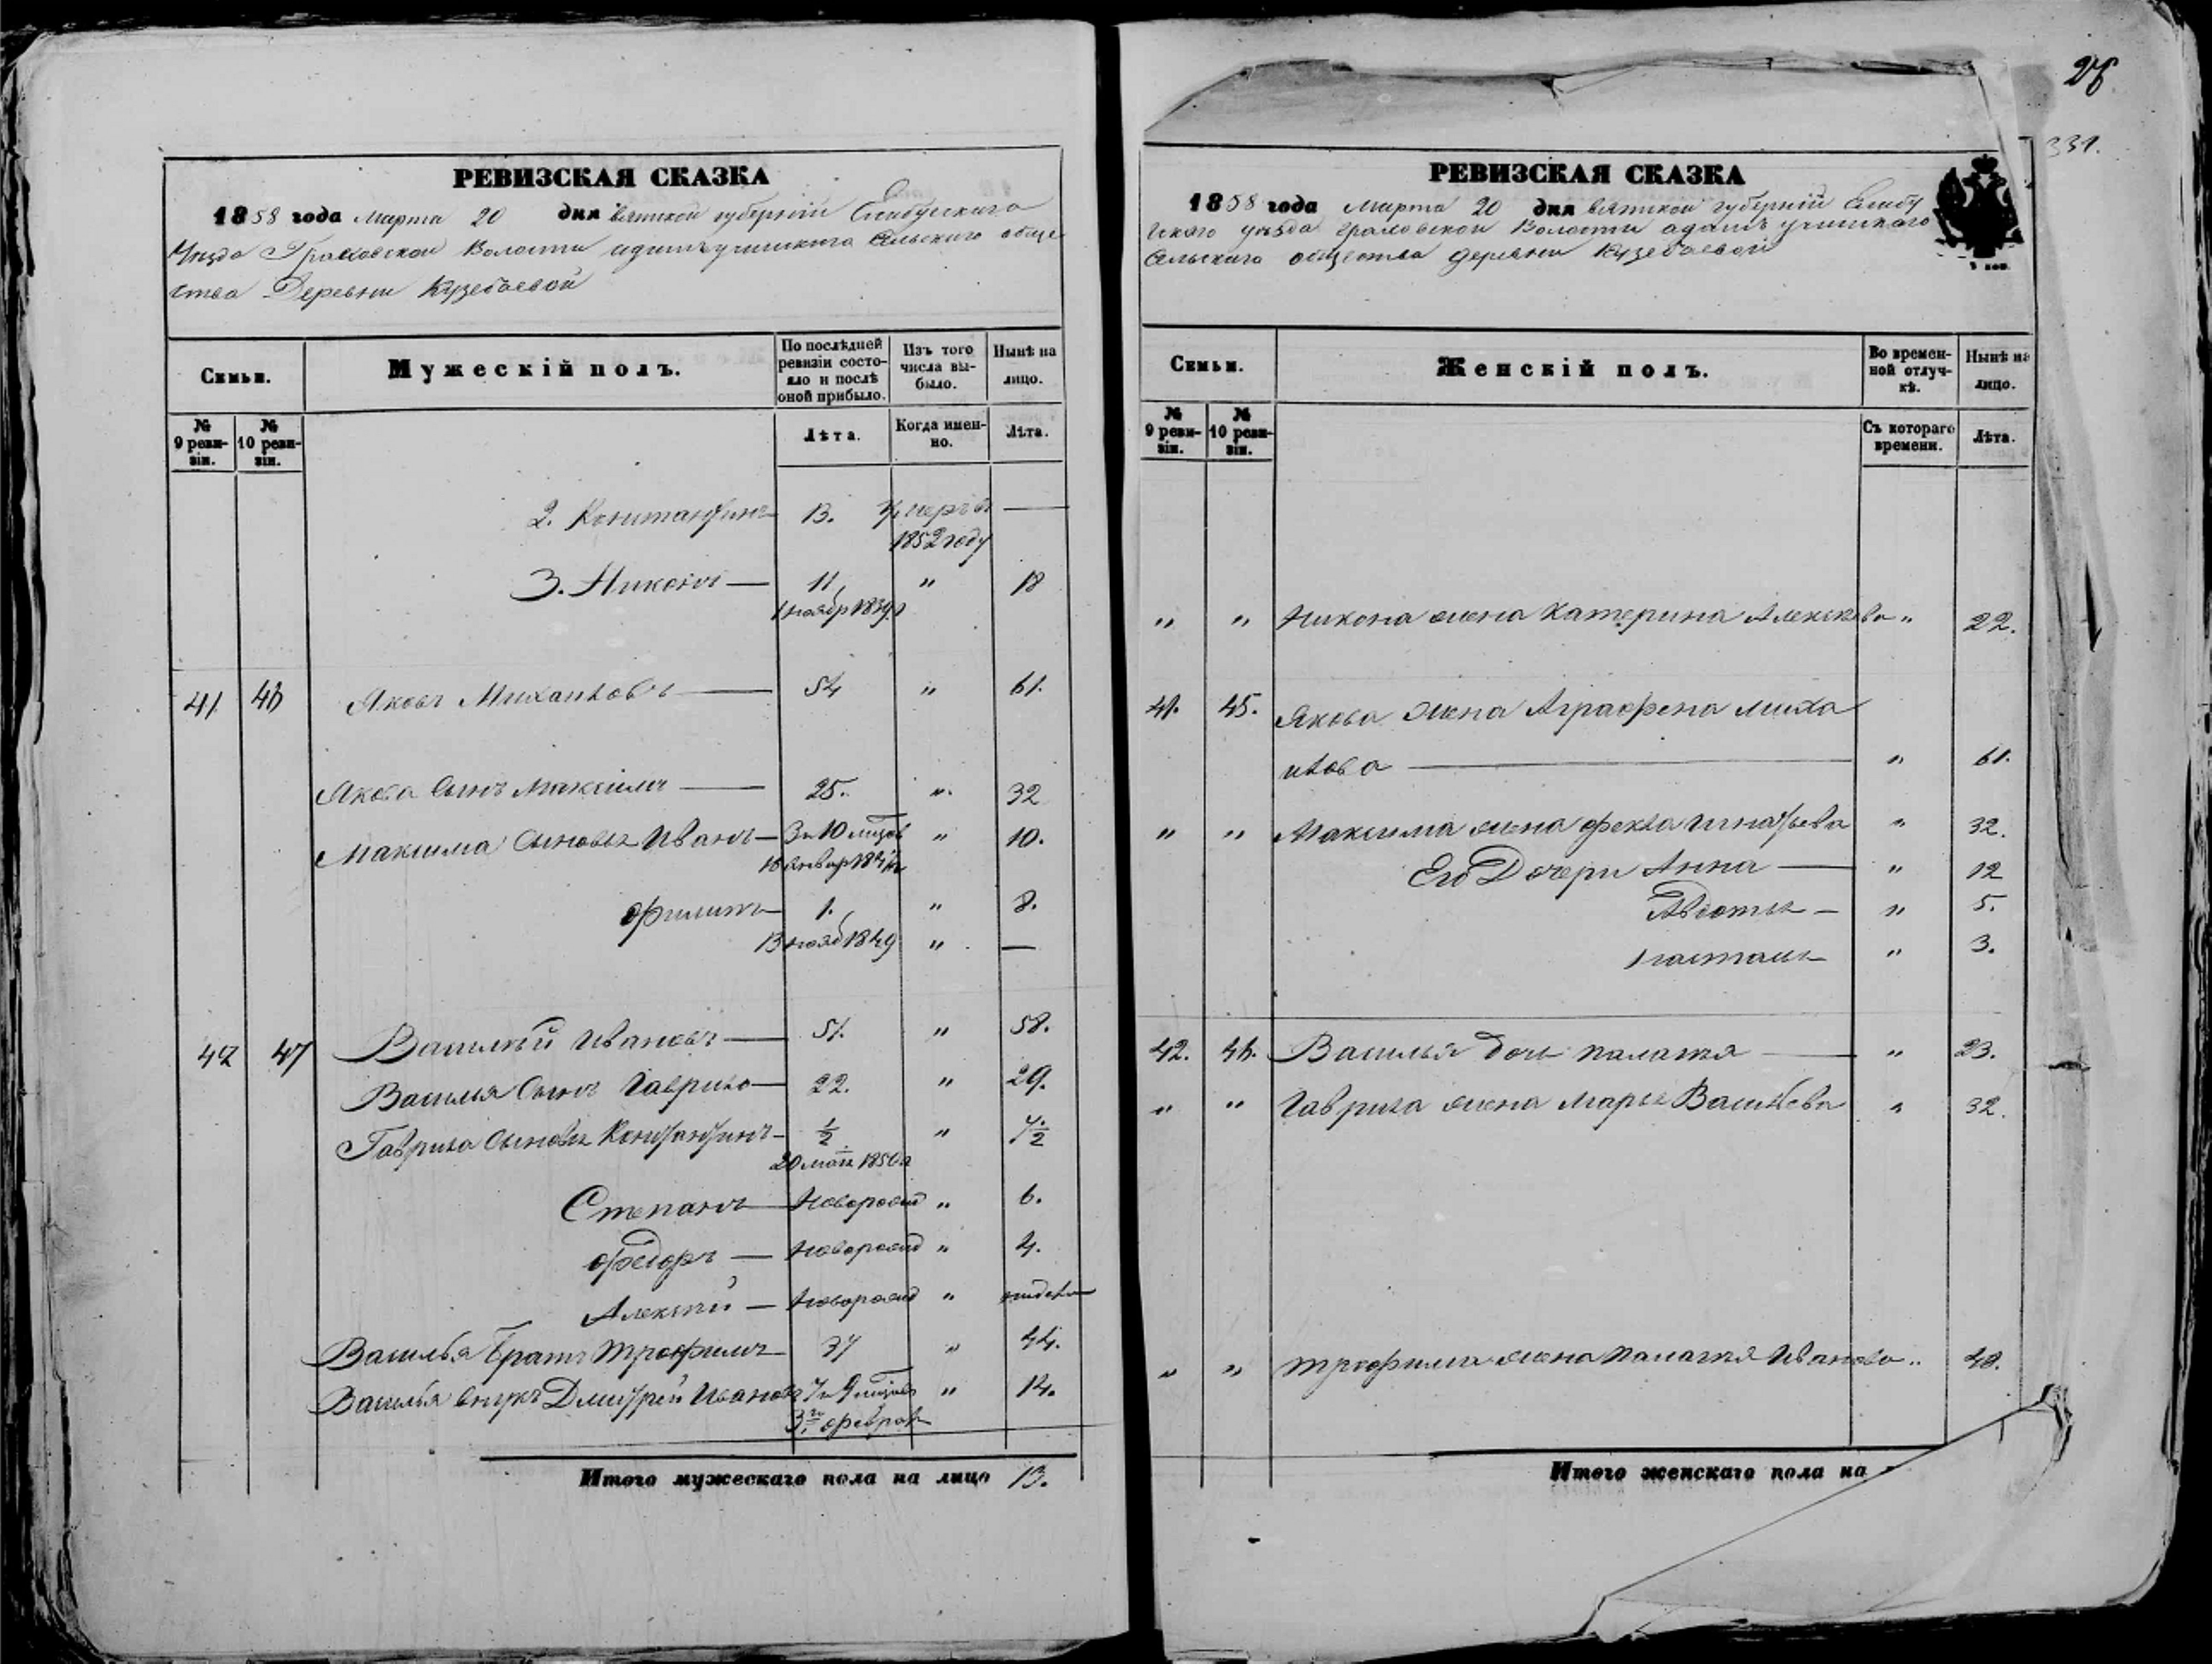 26
331.
РЕВИЗСКАЯ СКАЗКА
1858 года марта 20 дня вятской губернии Елабугскаго
Уезда Граховской Волости адамъучинскаго Сельскаго обще
ства Деревни Кузебаевой
Семьи.
Мужескій полъ.
По послѣдней ревизіи состояло и послѣ оной прибыло.
Изъ того числа выбыло.
Нынѣ на лицо.
№ 9 ревизіи.
№ 10 ревизіи.
Лѣта.
Когда именно.
Лѣта.
2. Константинъ 13. Умеръ въ —
1852 году
3. Никонъ — 11, " 18
1 ноябр 1839
41 Яковъ Михаиловъ — 54 " 61.
Якова Сынъ Максимъ — 25. " 32
Максима Сыновья Иванъ — 3 и 10 " 10.
Филипъ 1. " 8.
13 нояб 1849 " —
42 47 Василий Ивановъ — 51. " 58.
Василья Сынъ Гаврило — 22. " 29.
Гаврила Сыновья Константинъ — ½ " 7½
20 1850
Степанъ — Новорожд " 6.
Федоръ — Новорожд " 4.
Алексѣй — Новорожд "
Василья Братъ Трофимъ 37 " 44.
Василья внукъ Дмитрей Ивановъ 7 и 9 " 14.
3. феврал
Итого мужескаго пола на лицо 13.
РЕВИЗСКАЯ СКАЗКА
1858 года марта 20 дня вятской губерній Елабу
гскаго уезда граховской Волости адамъ учинскаго
Сельскаго общества деревни Кузебаевой
Семьи.
Женскій полъ.
Во временной отлучкѣ.
Нынѣ на лицо.
№ 9 ревизіи.
№ 10 ревизіи.
Съ котораго времени.
Лѣта.
" " Никона жена Катерина Алексѣева " 22.
41. 45. Якова жена Аграфена миха
илова — " 61.
" " Максима жена фекла " 32.
Его Дочери Анна — " 12
Авдотья — " 5.
настасья " 3.
42. 46. Василья дочь палагея — " 23.
" " Гаврила жена марья Васильева " 32.
" " трофима жена палагея Иванова " 48.
Итого женскаго пола на